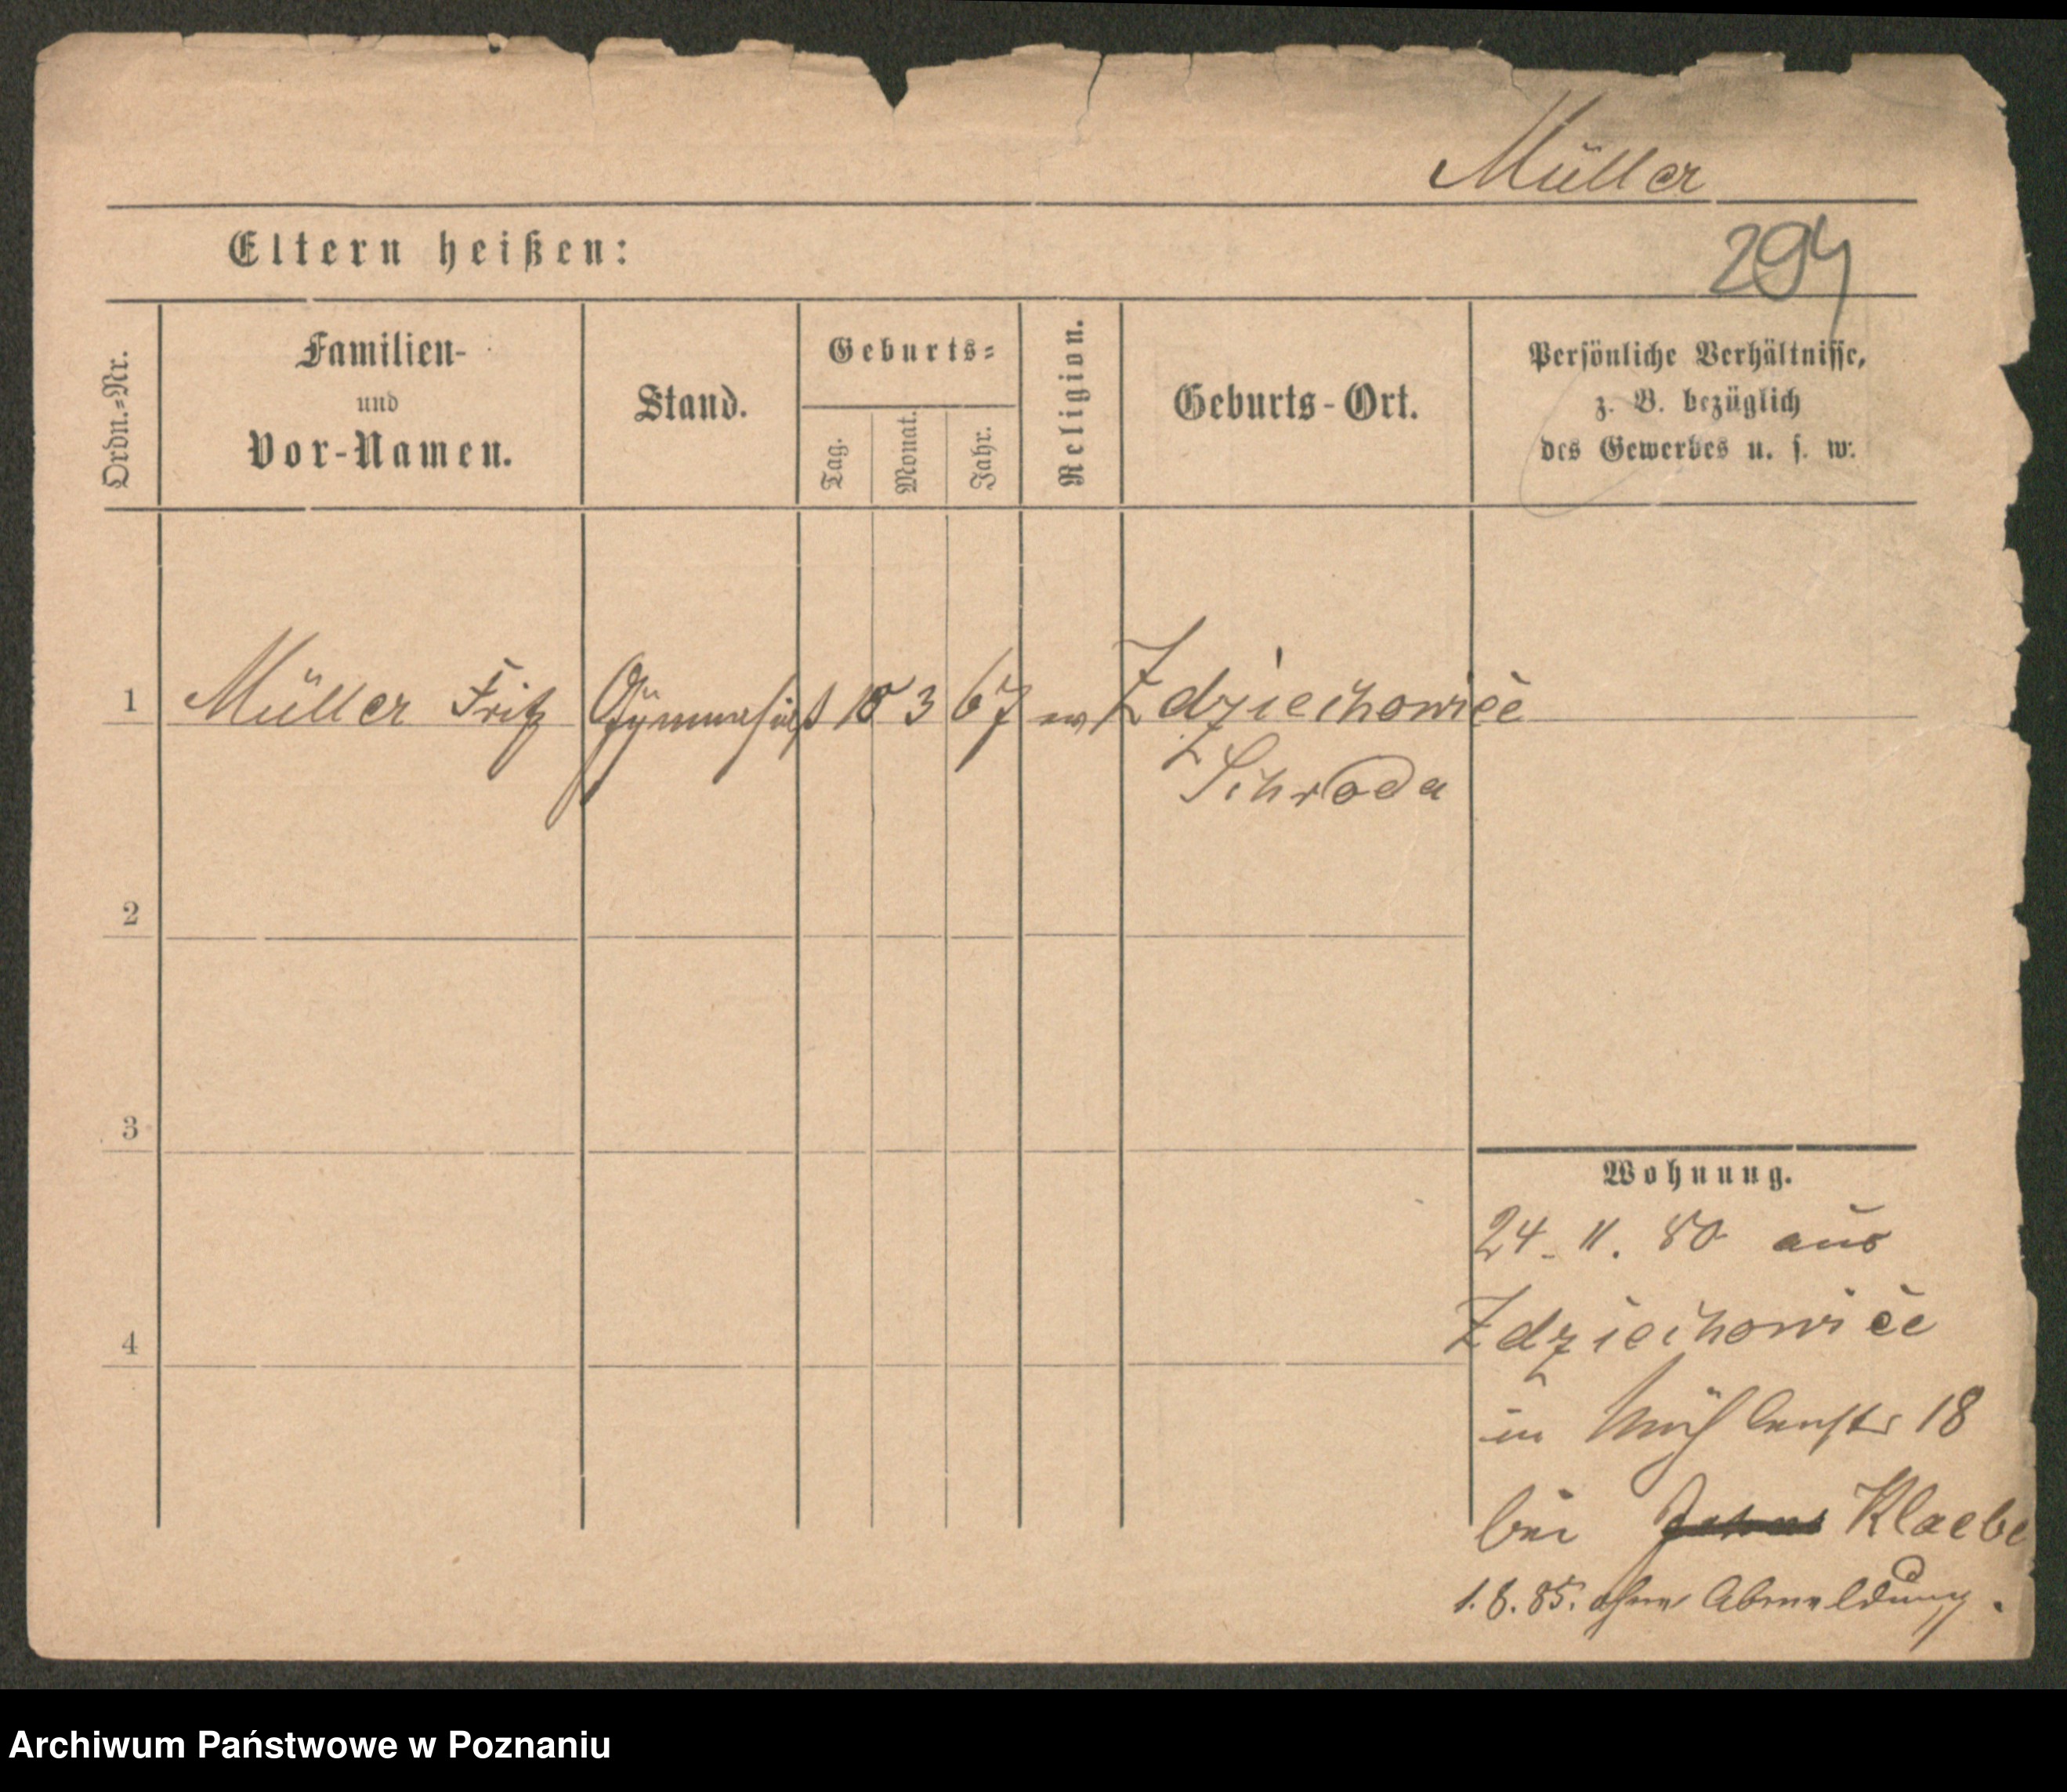 Müller
Eltern heißen:
294
Ordn.-Nr.
Familien-
und
Vor-Namen.
Stand.
Geburts-
Tag.
Monat.
Jahr.
Religion.
Geburts-Ort.
Persönliche Verhältnisse,
z. B. bezüglich
des Gewerbes u. s. w.
1 Müller Fritz Gymnasiast 18 3 67 ev Zdziechowice
Schroda
2
3
4
Wohnung.
24. 11. 80 aus
Zdziechowice
in Mühlenstr 18
bei Klaebe
1. 8. 85. ohne Abmeldung.
Archiwum Państwowe w Poznaniu